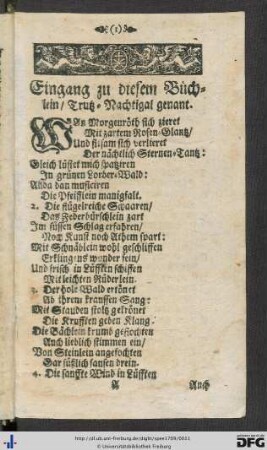 (1)
Eingang zu diesem Büch-
lein / Trutz-Nachtigal genant.
WAn Morgenröth sich zieret
Mit zartem Rosen-Glantz/
Und sitsam sich verlieret
Der nächtlich Sternen-Tantz:
Gleich lüstet mich spatziren
In grünen Lorber-Wald:
Allda dan musiciren
Die Pfeifflein manigfalt.
2. Die flügelreiche Schaaren/
Das Federbürschlein zart
Im süssen Schlag erfahren/
Noch Kunst noch Athem spart:
Mit Schnäblein wohl geschliffen
Erklingens wunder fein/
Und frisch in Lüfften schiffen
Mit leichten Rüderlein.
3. Der hole Wald ertönet
Ab ihrem krausen Sang:
Mit Stauden stoltz gekrönet
Die Krufften geben Klang.
Die Bächlein krumb geflochten
Auch lieblich stimmen ein/
Von Steinlein angefochten
Gar süßlich sausen drein.
4. Die sanffte Wind in Lüfften
A Auch
http://dl.ub.uni-freiburg.de/diglit/spee1709/0021
© Universitätsbibliothek Freiburg
gefördert durch die
DFG